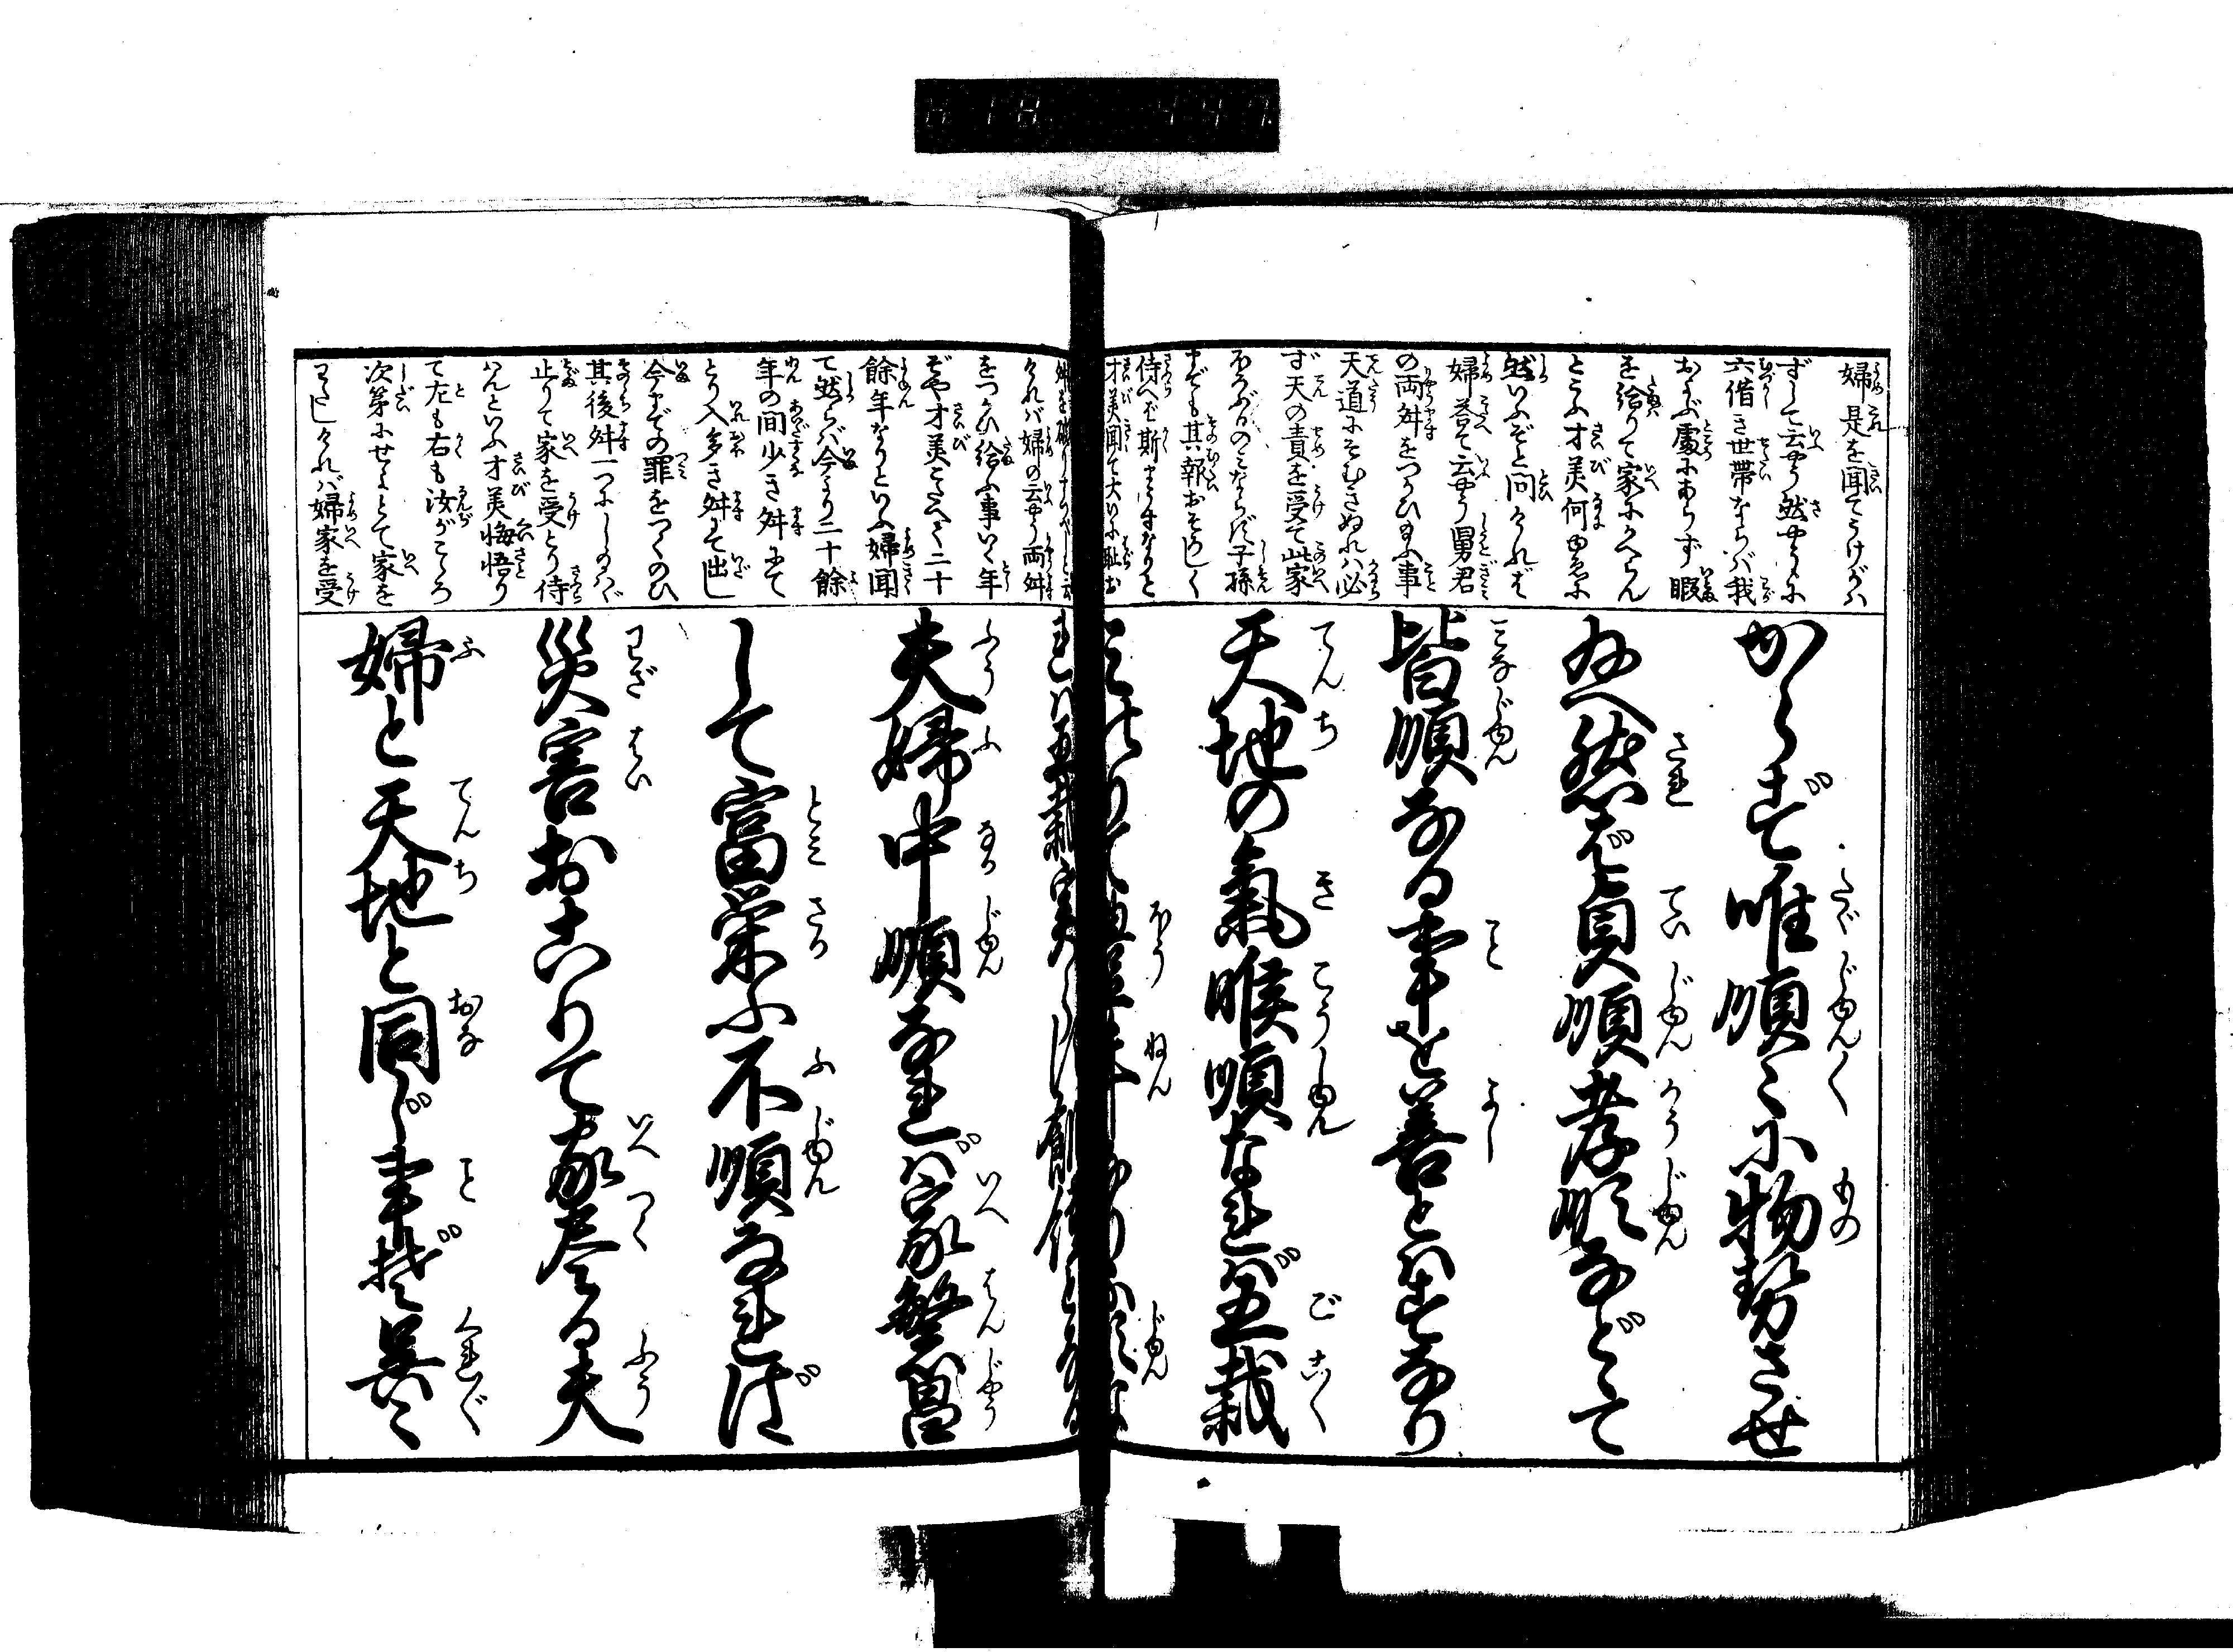 婦是を聞てうけがハ
ずして云やう然やうに
六借き世帯ならバ我
およぶ處にあらず暇
を給りて家にかへらん
といふ才美何ゆゑに
然いふぞと問けれバ
婦答て云やう舅君
の両舛をつかひ給ふ事
天道にそむきぬれハ必
ず天の責を受て此家
ほろぶるのミならず子孫
までも其報おそろしく
侍へバ斯まうすなりと
才美聞て大いに恥
からず唯順〻に物勢させ
給へ然バ貞順孝順などゝて
皆順なる事を善とはするなり
天地の氣候順なれバ五穀
けれバ婦の云やう両舛
をつかひ給ふ事いく年
ぞや才美こたへて二十
餘年なりといふ婦聞
て然らバ今より二十餘
年の間少き舛にて
とり入多き舛にて出し
今までの罪をつくのひ
其後舛一つにしるハゞ
止りて家を受とり侍
はんといふ才美悔悟り
て左も右も汝がこゝろ
次第にせよとて家を
わたしけれバ婦家を受
夫婦中順なれバ家繁昌
して富栄ふ不順なれば
災害おこりて家尽る夫
婦と天地と同じ事ぞ呉〻